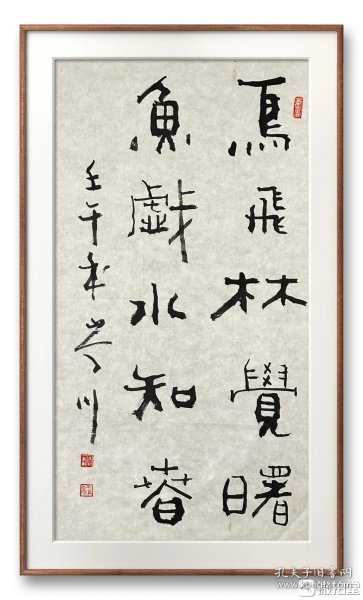 鳥飛林覺曙
魚戲水知春
壬午年岑川
孔夫子旧书网
微拍堂